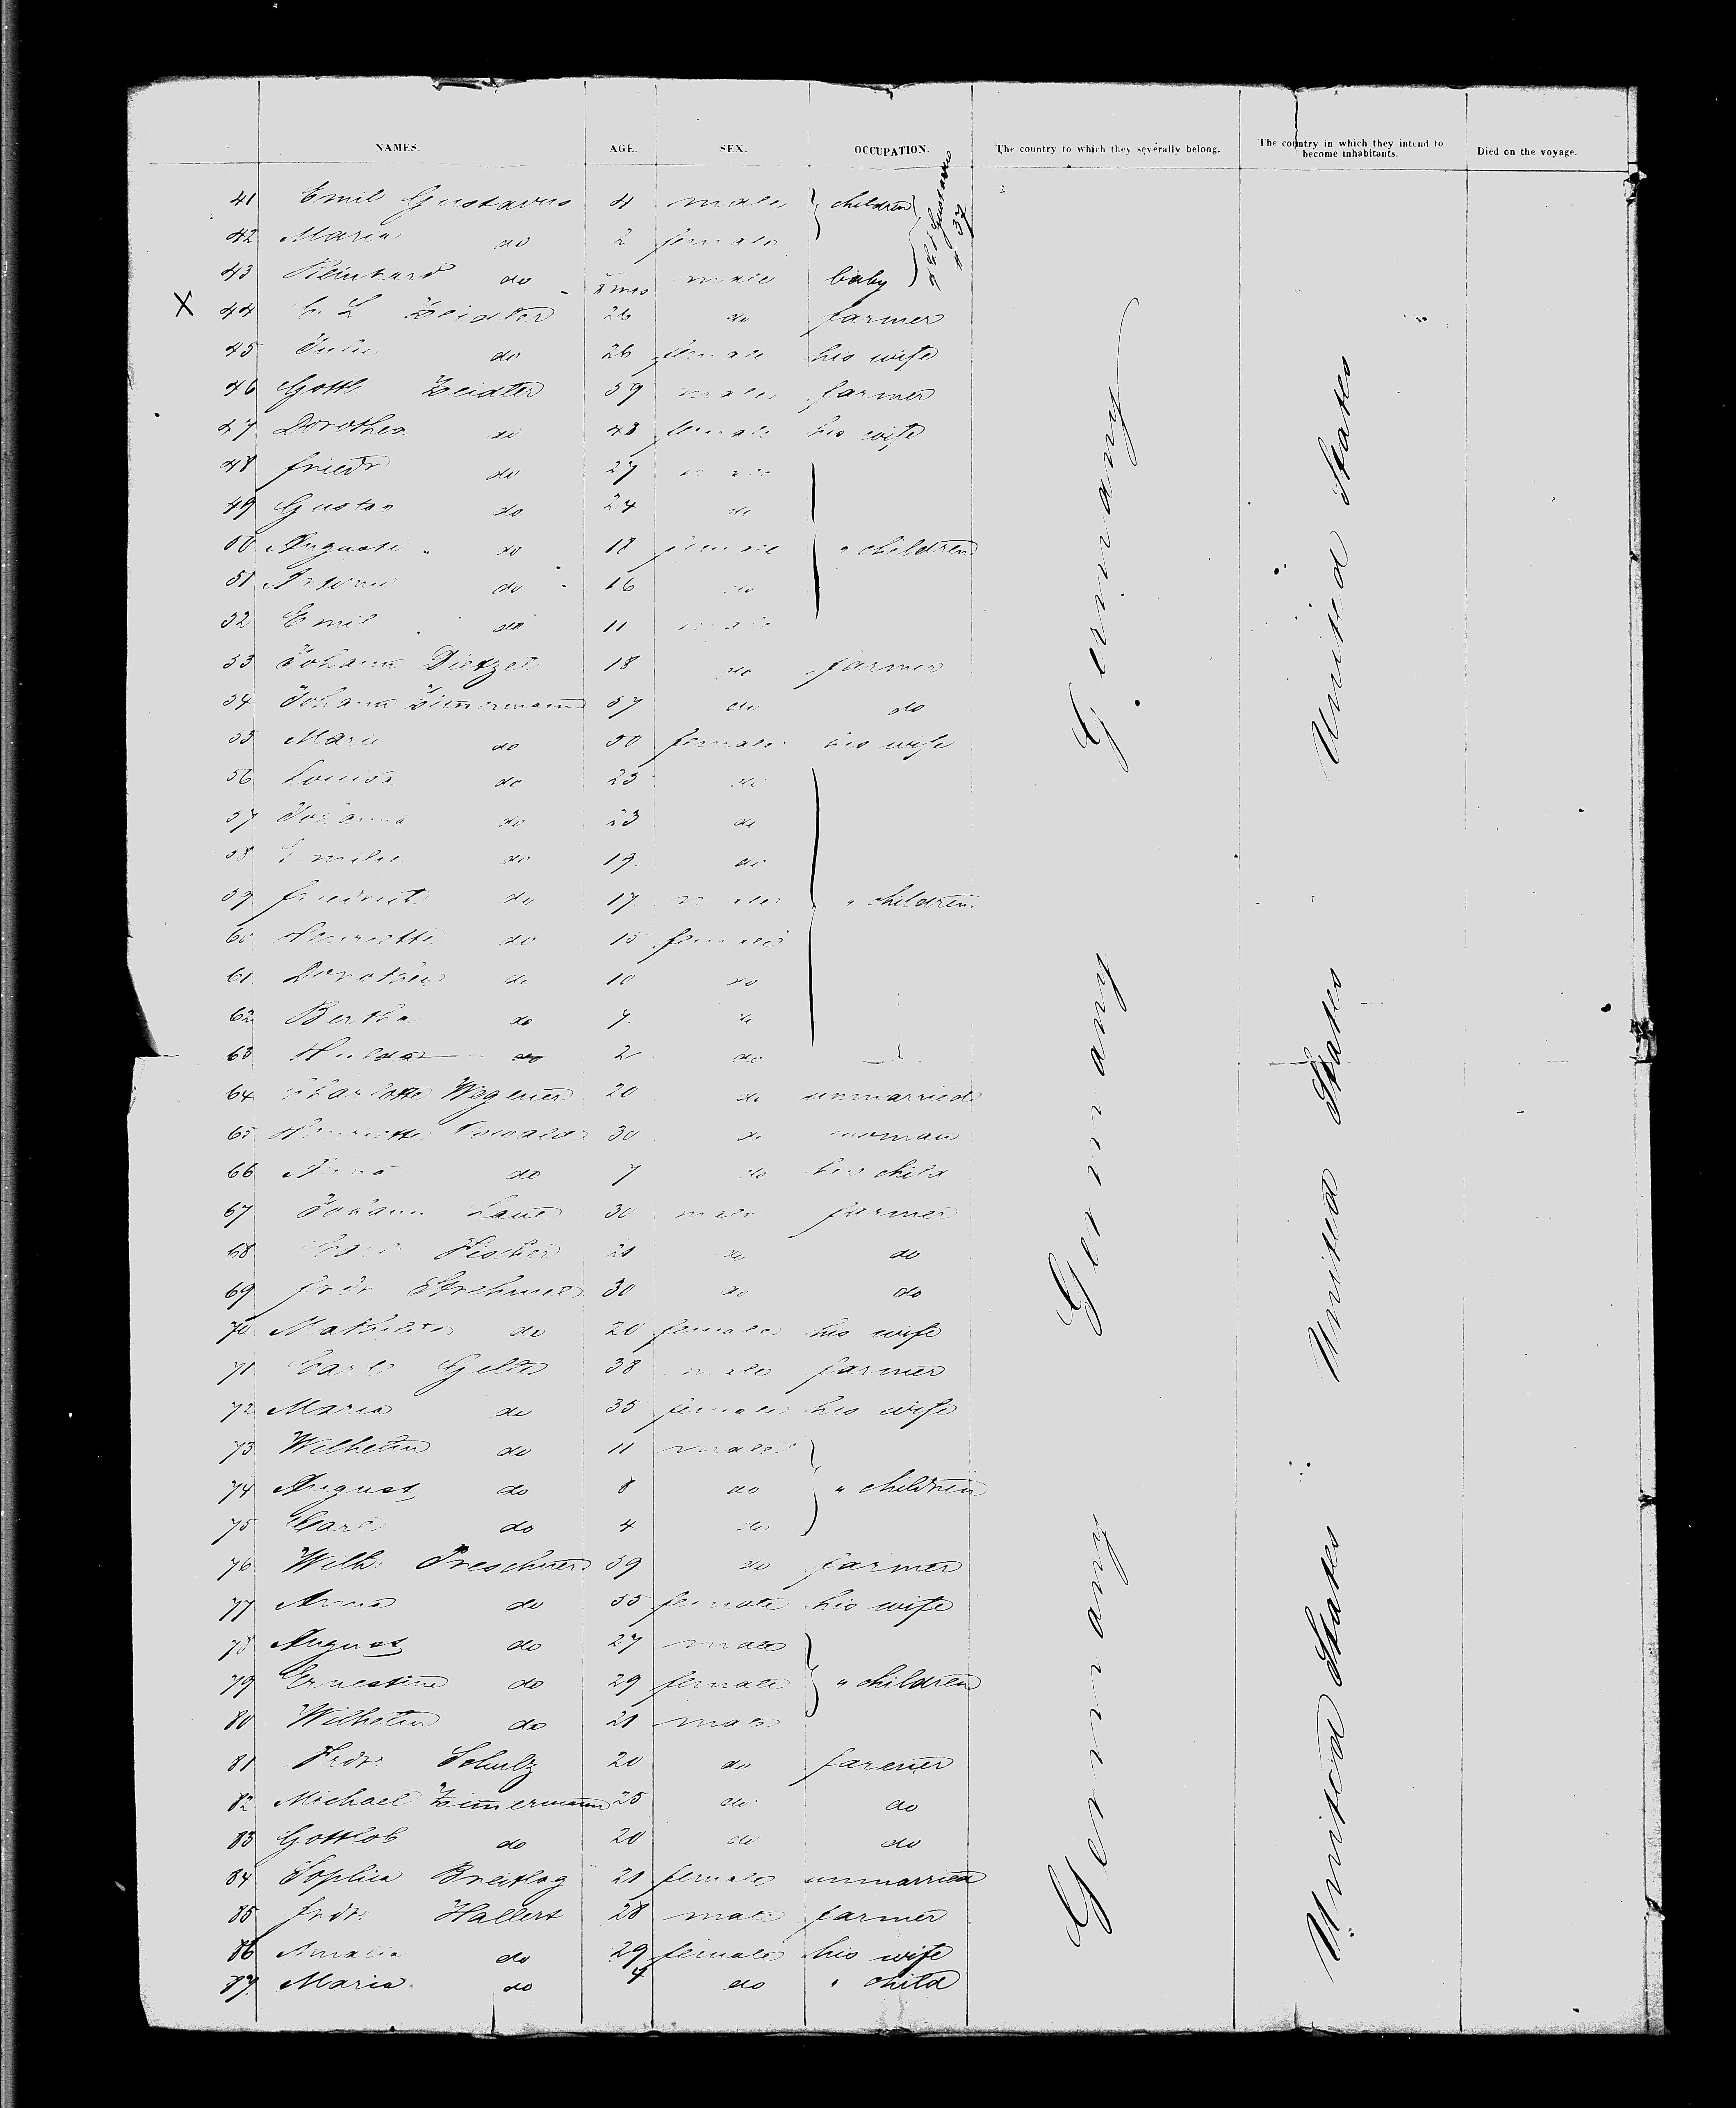 NAMES. AGE. SEX. OCCUPATION. The country to which they severally belong. The country in which they intend to become inhabitants. Died on the voyage.
41 Emil Gustavus 4 male children
42 Maria do 2 female
43 Reinhard do 8 mos male baby
X 44 Zeidler 26 do farmer
45 do 26 female his wife
46 Gottl. Zeidler 59 male farmer
47 Dorothea do 48 female his wife
48 Friedr do 27 male
49 Gustav do 24 do
50 Auguste do 18 female " children
51 do 16 do
52 Emil do 11 male
53 Johann Dietzel 18 do farmer
54 Johann Zimmermann 57 do do
55 Marie do 50 female his wife
56 Louisa do 25 do
57 Johanna do 23 do
58 Emilie do 19 do
59 Friedrich do 17 male " children
60 Henriette do 15 female
61 Dorothea do 10 do
62 Bertha do 7 do
63 Hulda do 2 do
64 Charlotte Wegener 20 do unmarried
65 Henriette 30 do woman
66 Anna do 7 do her child
67 Johann 30 male farmer
68 Fischer 21 do do
69 Frdr 30 do do
70 Mathilde do 20 female his wife
71 Carl 38 male farmer
72 Maria do 35 female his wife
73 Wilhelm do 11 male
74 August do 8 do " children
75 Carl do 4 do
76 Wilh. Preschner 59 do farmer
77 Anna do 55 female his wife
78 August do 27 male
79 Ernestine do 29 female " children
80 Wilhelm do 21 male
81 Frdr. Schulz 20 do farmer
82 Michael Zimmermann 25 do do
83 Gottlob do 20 do do
84 Sophia Breitlag 21 female unmarried
85 Frdr. Hallert 28 male farmer
86 Amalie do 29 female his wife
87 Maria do 4 do " child
Germany
Germany
Germany
United States
United States
United States